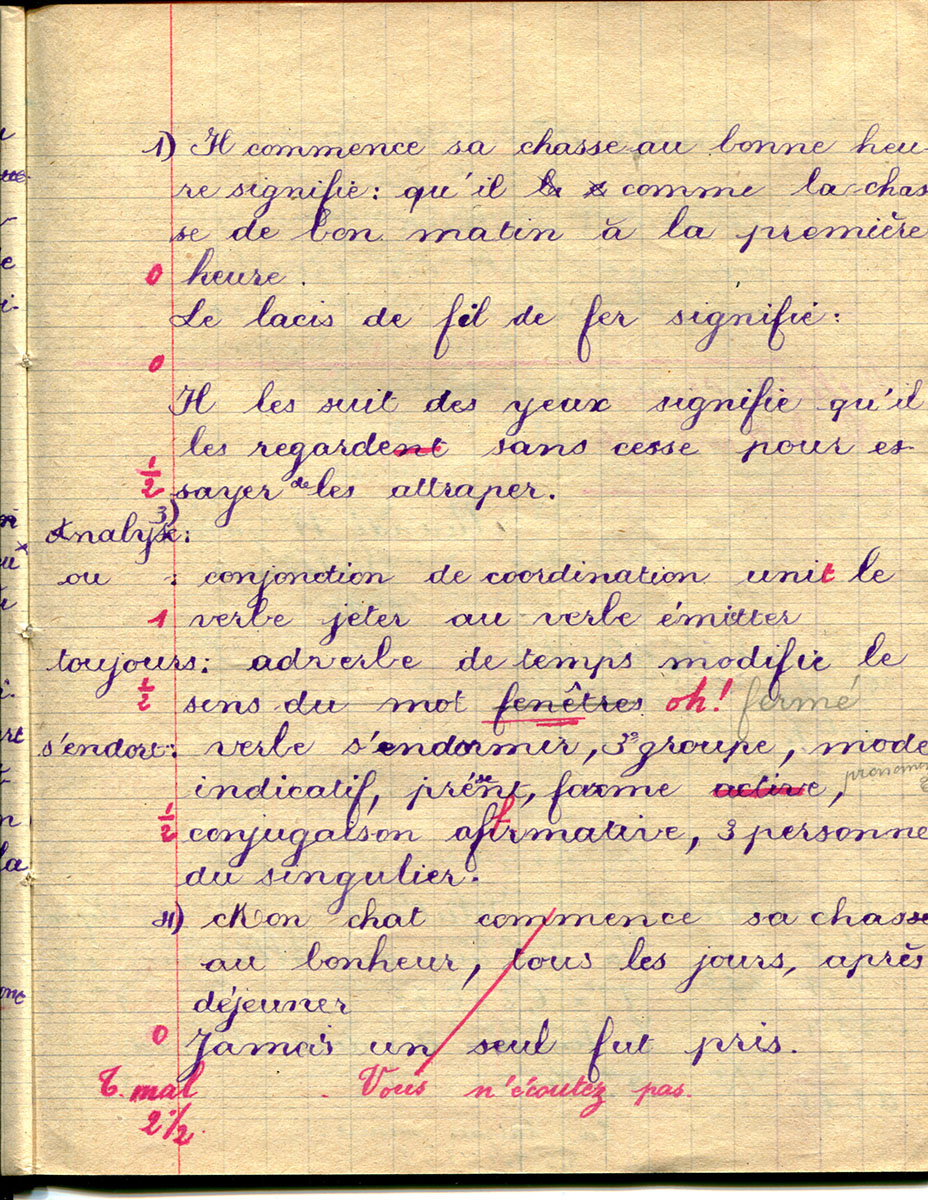 1) Il commence sa chasse au bonne heu-
re signifie: qu'il comme la chas
se de bon matin à la première
0 heure.
Le lacis de fil de fer signifie:
0
Il les suit des yeux signifie qu'il
les regardent sans cesse pour es-
1/2 sayer de les attraper.
3)
Analyse:
ou : conjonction de coordination unit le
1 verbe jeter au verbe émitter
toujours: adverbe de temps modifie le
1/2 sens du mot fenêtres oh! fermé
s'endort: verbe s'endormir, 3e groupe, mode
indicatif, présent, forme active,
1/2 conjugaison affirmative, 3 personne
du singulier.
4) Mon chat commence sa chasse
au bonheur, tous les jours, après
déjeuner
0 Jamais un seul fut pris.
T. mal Vous n'écoutez pas.
2 1/2